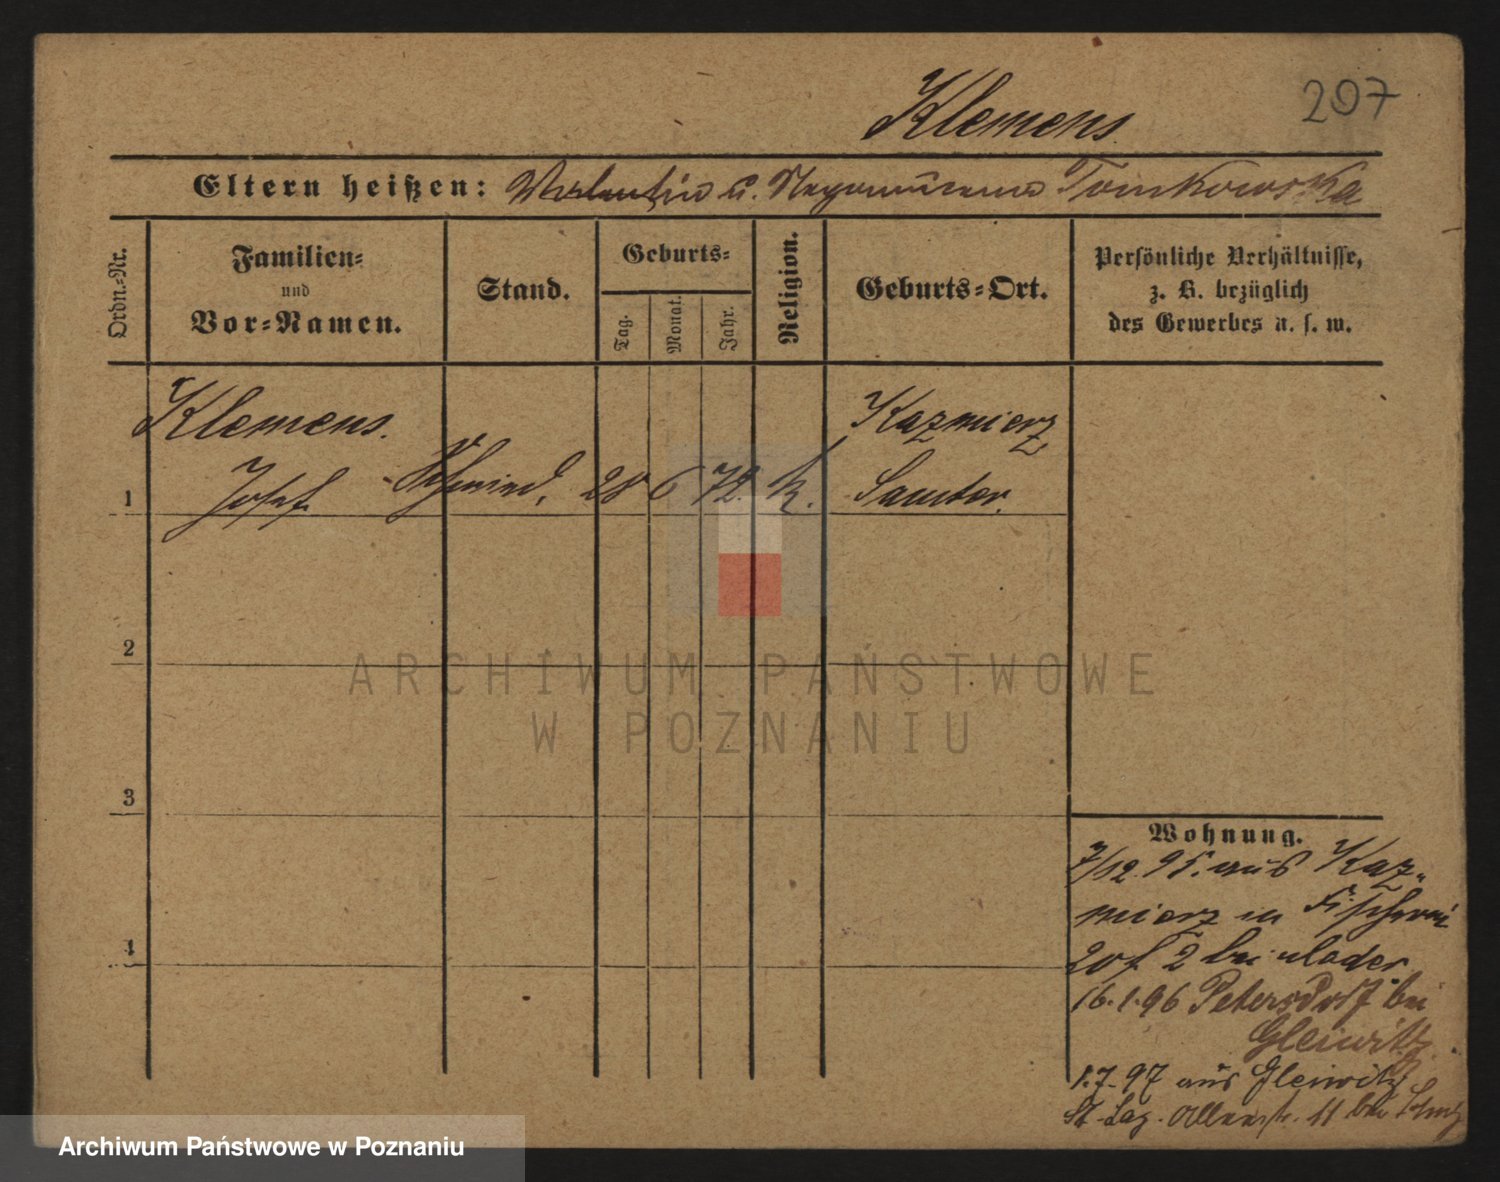 207
Klemens
Eltern heißen: Valentin u. Tomkowska
Ordn.-Nr.
Familien-
und
Vor-Namen.
Stand.
Geburts-
Tag.
Monat.
Jahr.
Religion.
Geburts-Ort.
Persönliche Verhältnisse,
z. B. bezüglich
des Gewerbes u. s. w.
Klemens.
Kazmierz
1 Josef Schmied, 28 6 72. k. Samter.
2
ARCHIWUM PAŃSTWOWE
W POZNANIU
3
Wohnung.
7/12. 95. aus Kaz-
mierz in Fischerei
20 f 2 bei
4
16.1.96 Petersdorf bei
Gleiwitz.
1.7.97 aus Gleiwitz
St. Laz. 11 bei
Archiwum Państwowe w Poznaniu